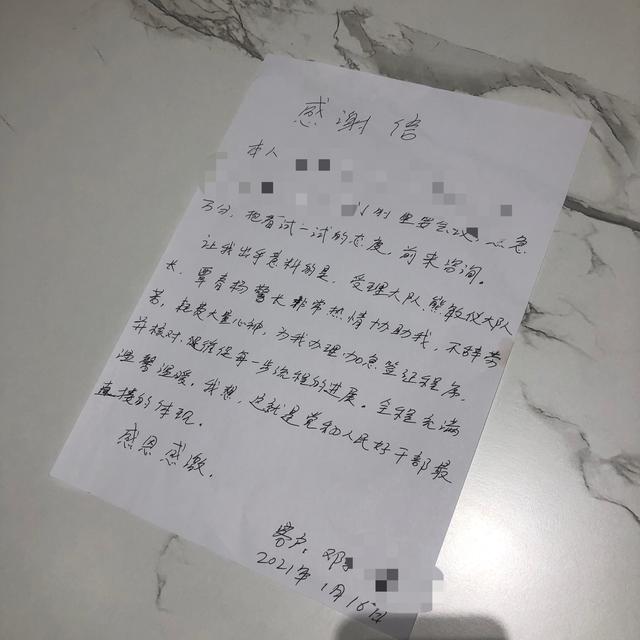 感谢信
本人
万分，抱着试一试的态度，前来咨询。
让我出乎意料的是，受理大队熊敏仪大队
长，覃春杨警长非常热情协助我，不辞劳
苦，耗费大量心神，为我办理加急签证程序，
并核对，促每一步流程的进展。全程充满
温馨温暖。我想，这就是党和人民好干部最
直接的体现。
感恩感激。
客户：邓
2021年1月16日